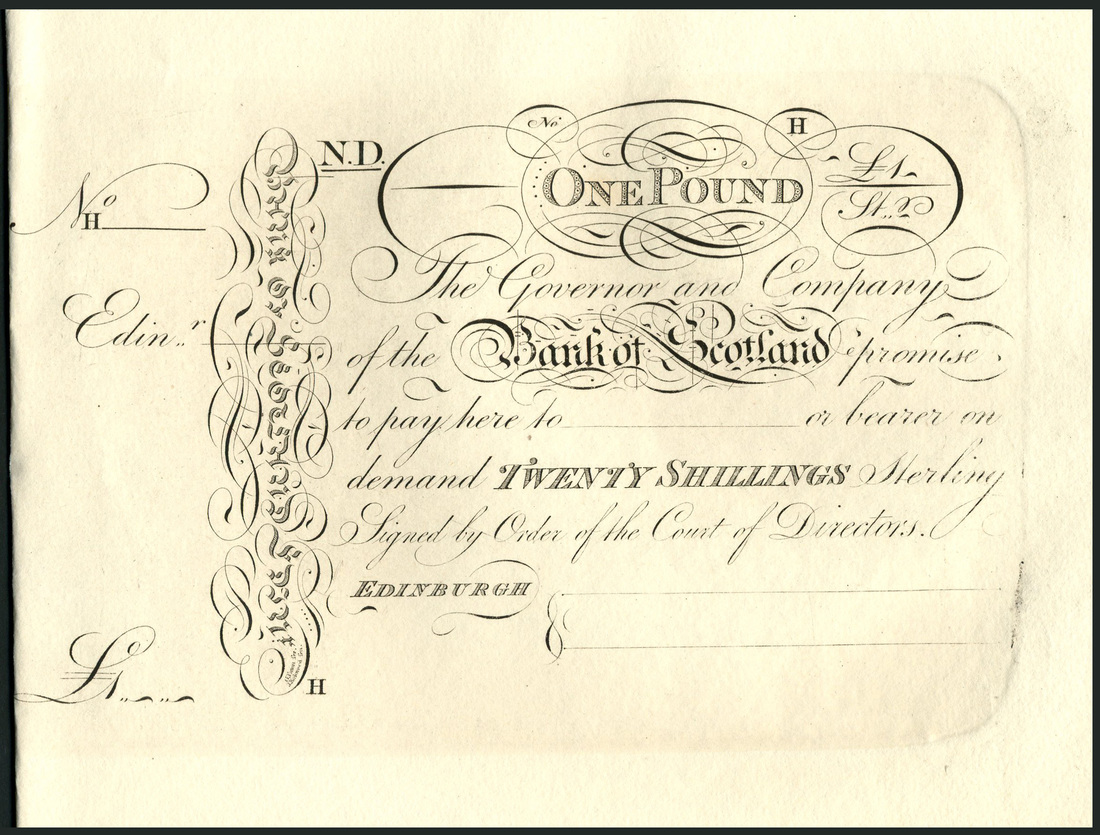 No H
Edin..r
£1
N.D.
No H
ONE POUND
£1
St..g
The Governor and Company
of the Bank of Scotland promise
to pay here to or bearer on
demand TWENTY SHILLINGS Sterling
Signed by Order of the Court of Directors.
EDINBURGH
H